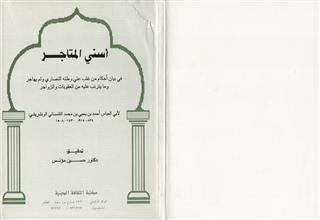 أسنى المتاجر
في بيان أحكام من غلب على وطنه النصارى ولم يهاجر
وما يترتب عليه من العقوبات والزواجر
لأبي العباس أحمد بن يحيى بن محمد التلمساني الونشريشي
تحقيق
دكتور حسين مؤنس
مكتبة الثقافة الدينية